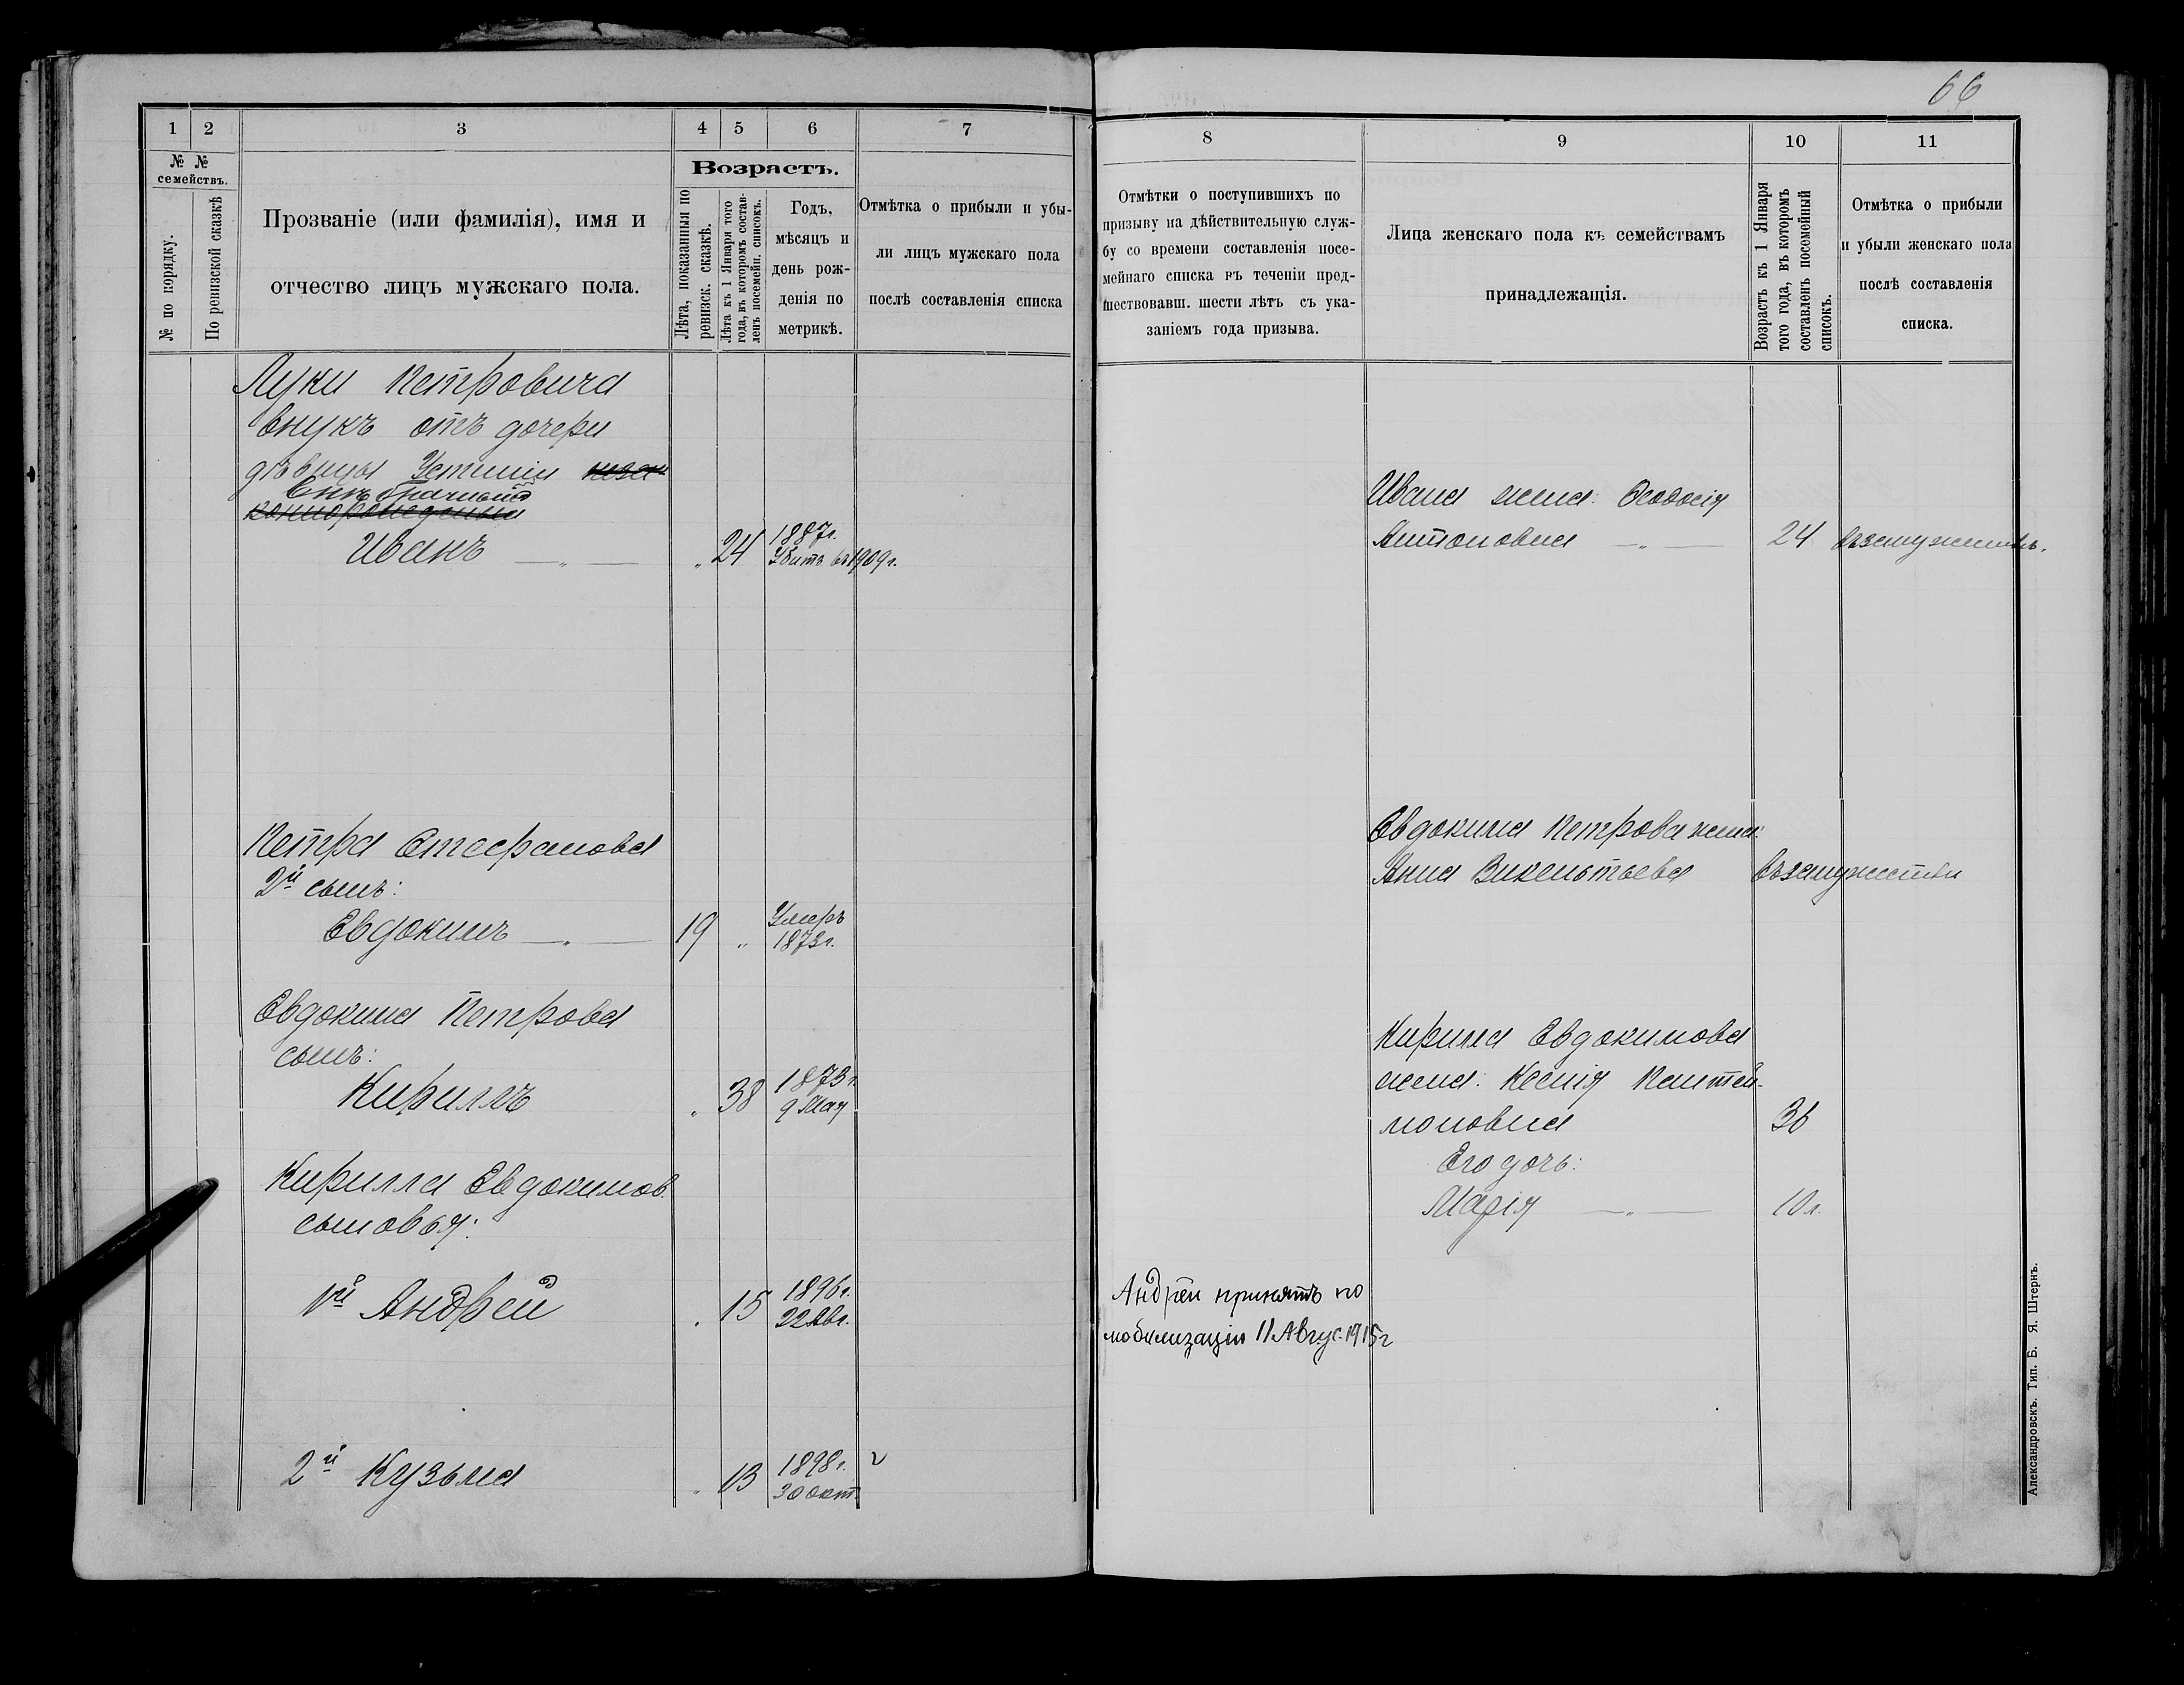 66
1 2 3 4 5 6 7
№ № семействъ.
№ по порядку.
По ревизской сказкѣ
Прозваніе (или фамилія), имя и
отчество лицъ мужскаго пола.
Возрастъ.
Лѣта, показанныя по
ревизск. сказкѣ.
Лѣта къ 1 Января того
года, въ которомъ состав-
ленъ посемейн. списокъ.
Годъ,
мѣсяцъ и
день рож-
денія по
метрикѣ.
Отмѣтка о прибыли и убы-
ли лицъ мужскаго пола
послѣ составленія списка
Луки Петровича
внукъ отъ дочери
дѣвицы Устиніи неза-
Сынъ
коннорожденный
Иванъ — „ — „ 24 1887г.
Убитъ въ 1909г.
Петра Стефанова
2й сынъ:
Евдокимъ — „ — 19 „ Умеръ
1873г.
Евдокима Петрова
сынъ:
Кириллъ „ 38 1873г.
9 Мая
Кирилла Евдокимов.
сыновья:
1й Андрей „ 15 1896г.
22 Авг.
2й Кузьма „ 13 1898г.
30 окт.
8 9 10 11
Отмѣтки о поступившихъ по
призыву на дѣйствительную служ-
бу со времени составленія посе-
мейнаго списка въ теченіи пред-
шествовавш. шести лѣтъ съ ука-
заніемъ года призыва.
Лица женскаго пола къ семействамъ
принадлежащія.
Возрастъ къ 1 Января
того года, въ которомъ
составленъ посемейный
списокъ.
Отмѣтка о прибыли
и убыли женскаго пола
послѣ составленія
списка.
Ивана жена: Ѳеодосія
Антоновна — „ — 24 въ замужествѣ.
Евдокима Петрова жена:
Анна Викентьева въ замужествѣ
Кирилла Евдокимова
жена: Ксенія Пантей-
моновна 36
Его дочь:
Марія — „ — 10 л.
Андрей принятъ по
мобилизаціи 11 Авгус. 1915г
Александровскъ. Тип. Б. Я. Штернъ.